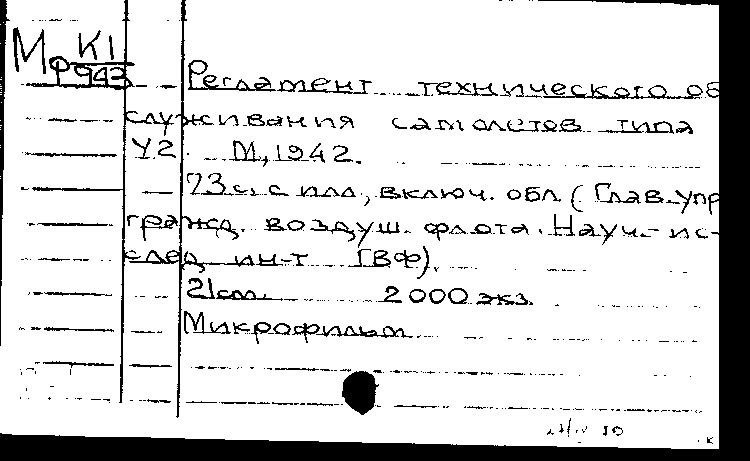 Мф К1
943
Регламент технического об
служивания самолетов типа
У2 М, 1942.
73 с. с илл., включ. обл. (Глав. упр
гражд. воздуш. флота. Науч.-ис-
след ин-т ГВФ).
21 см. 2000 экз.
Микрофильм